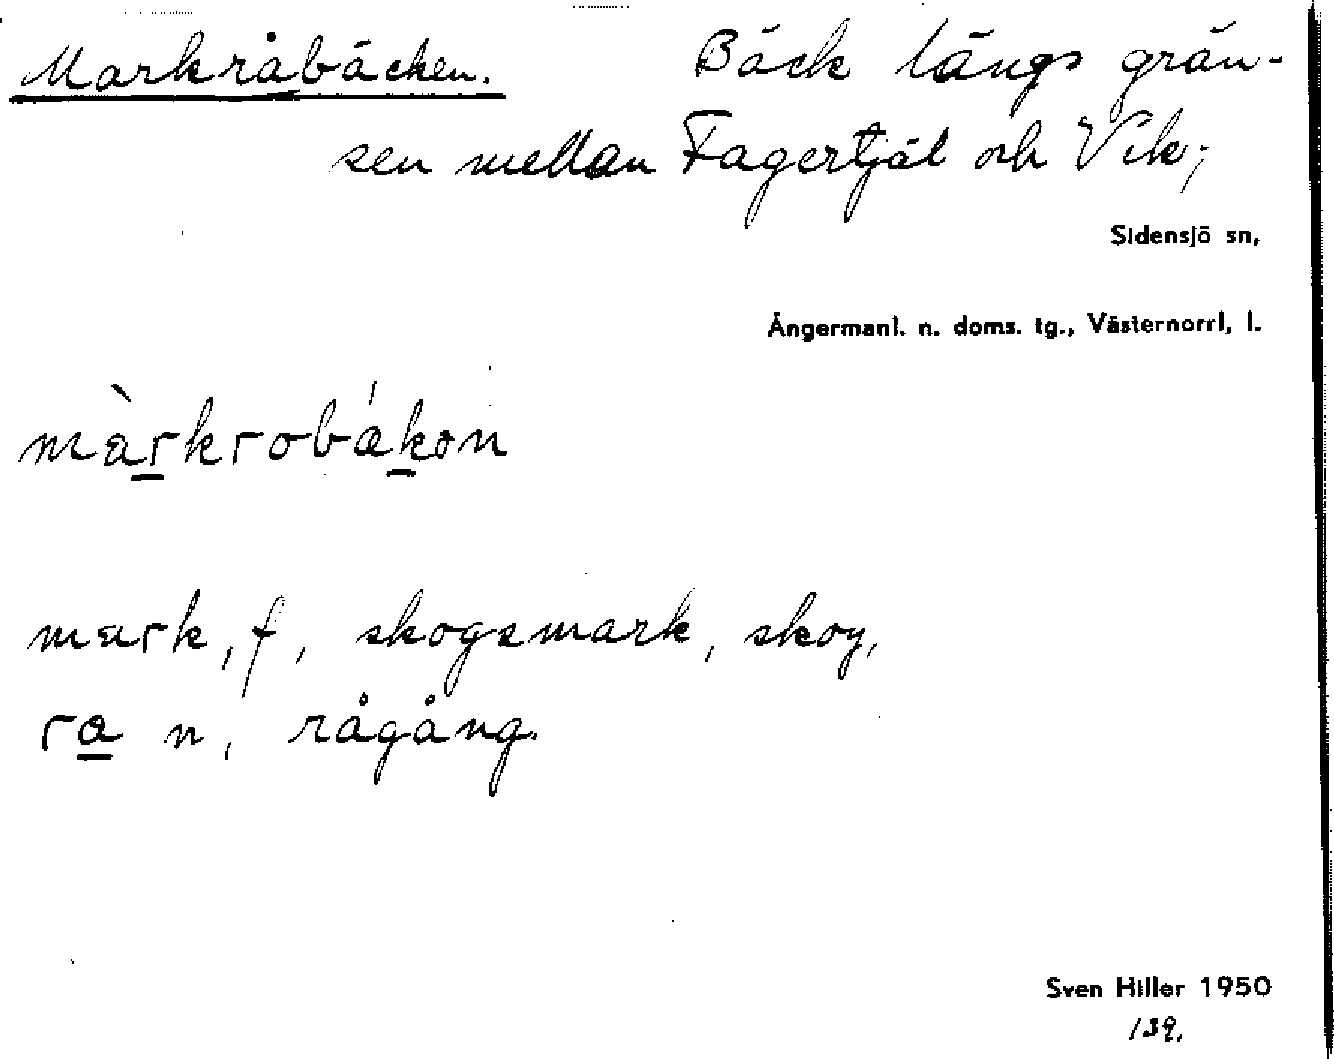 Markråbäcken. Bäck längs grän-
sen mellan Fagertjäl och Vik;
Sidensjö sn,
Ångermanl. n. doms. tg., Västernorrl. l.
màrkrobákon
mark, f, skogsmark, skog,
ra n, rågång.
Sven Hiller 1950
139.